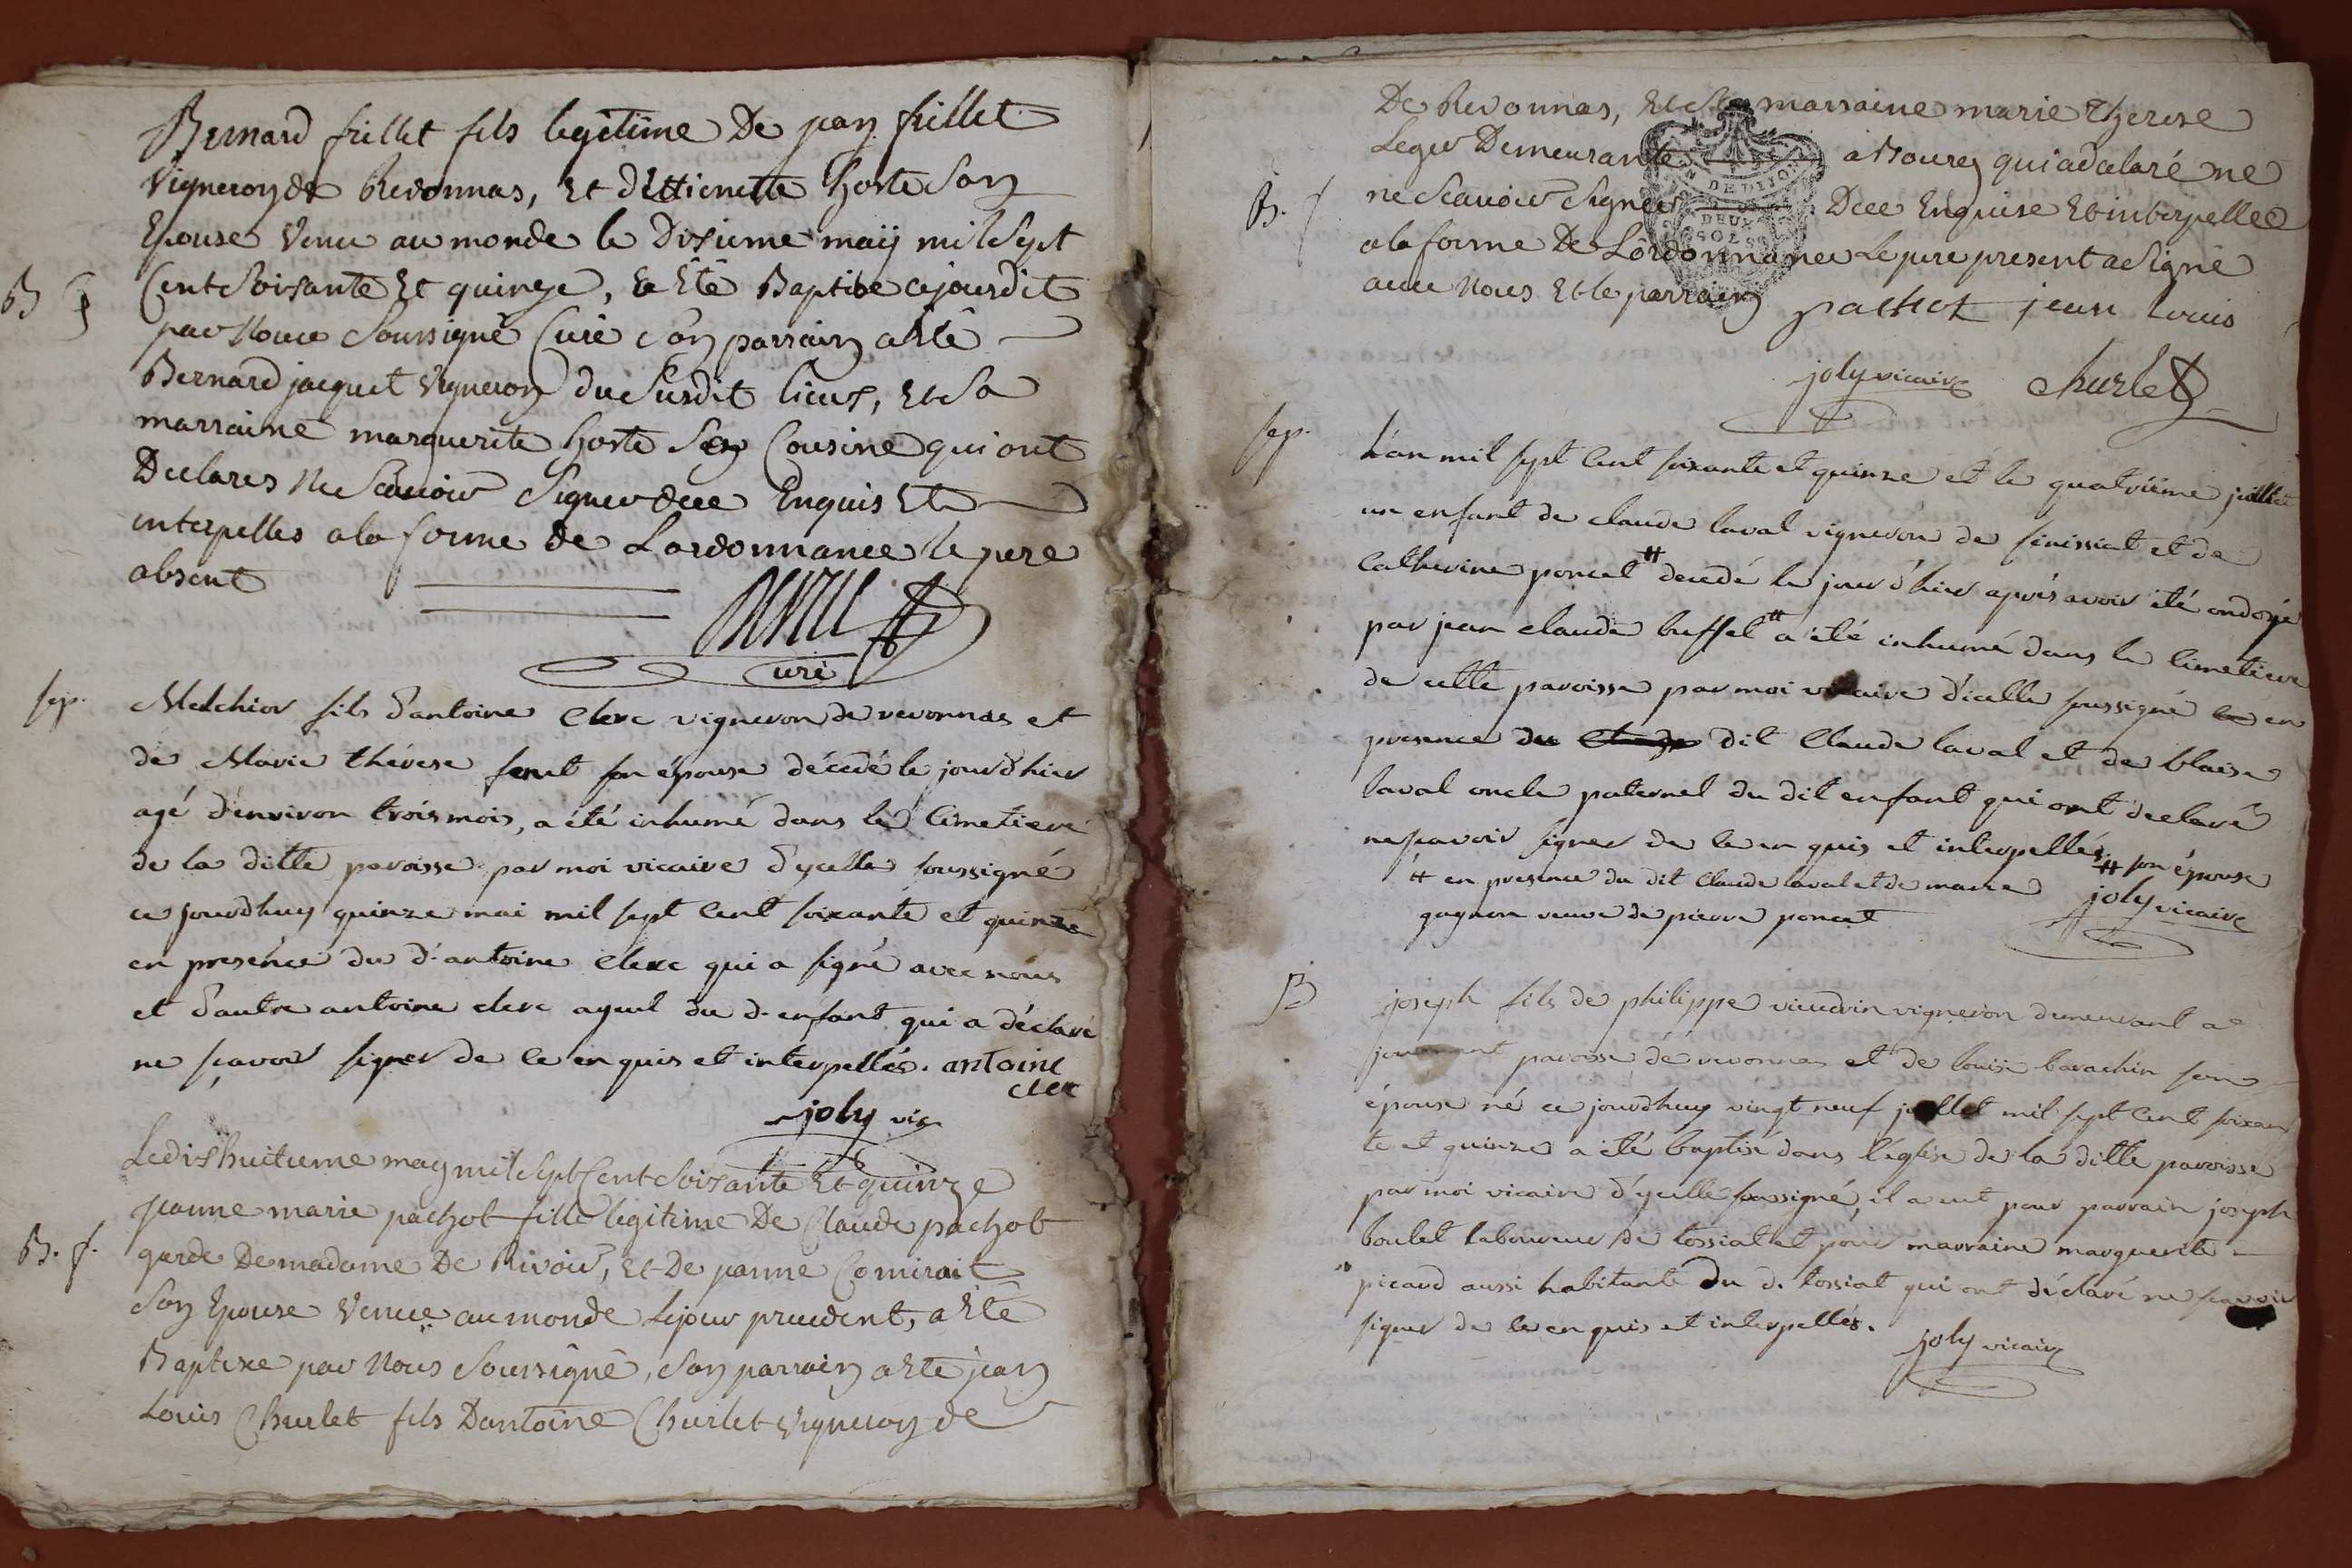 Bernard frillet fils legitime De jean frillet
Vigneron de Revonnas, Et d'Ettienette horte Son
Epouse Venu au monde le Dixieme maÿ mil Sept
B g Cent Soixante Et quinze, a Eté Baptise cejourdit
par Nous Soussigné Curé Son parrain a Eté
Bernard jacquet Vigneron du Susdit lieux, Et Sa
marraine marguerite horte Sa Cousine qui ont
Declares Ne Scavoir Signer dece Enquis Et
interpelles a la forme de Lordonnance le pere
absent
Curé
sep. Melchior fils d'antoine Clerc vigneron de revonnas et
de Marie thérese son épouse décédé le jour d'hier
agé d'environ trois mois, a été inhumé dans le Cimetiere
de la ditte paroisse par moi vicaire d'ycelle soussigné
ce jourd'huy quinze mai mil sept Cent soixante et quinze
en presénce du d. antoine Clerc qui a signé avec nous
et d'autre antoine clerc ayeul du d. enfant qui a déclaré
ne sçavoir signer de ce enquis et interpellés. antoine
clerc
joly vic.
Le dishuitieme may mil Sept Cent Soixante Et quinze
jeanne marie pachot fille legitime De Claude pachot
B. f. garde De madame De Rivoir, Et De janne Comirait
Son Epouse Venue au monde Le jour precedent, a Eté
Baptixe par Nous Soussigné, Son parrain a Eté jean
Louis Churlet fils Dantoine Churlet Vigneron de
De Revonnas, Et Sa marraine marie therese
Leger Demeurante a Bourg qui a declaré ne
B. f. ne Scavoir Signer Dece Enquise Et interpellee
a la forme De Lordonnance Le pere present a Signé
avec Nous Et le parrain pachot jean louis
joly vicaire churlet
DEUX
SOLS
sep. L'an mil sept Cent soixante et quinze et le quatrième juillet
un enfant de claude laval vigneron de sénissiat et de
Catherine poncet # decedé le jour d'hier aprés avoir été ondoyé
par jean claude buffet # a été inhumé dans le Cimetiere
de cette paroisse par moi vicaire d'icelle soussigné en
presence du dit Claude laval et de blaise
laval oncle paternel du dit enfant qui ont declaré
ne sçavoir signer de ce en quis et interpellés # son épouse
# en presence du dit Claude laval et de marie joly vicaire
gagnon veuve de pierre poncet
B joseph fils de philippe vieudrin vigneron demeurant a
paroisse de revonnas et de louise barachin son
épouse né ce jourd'huy vingt neuf juillet mil sept Cent soixan
te et quinze a été baptisé dans l'église de la ditte paroisse
par moi vicaire d'ycelle soussigné, il a eut pour parrain joseph
boulet laboureur de tossiat et pour marraine marguerite
picaud aussi habitante Du d. tossiat qui ont déclaré ne sçavoir
signer de ce en quis et interpellés. joly vicaire